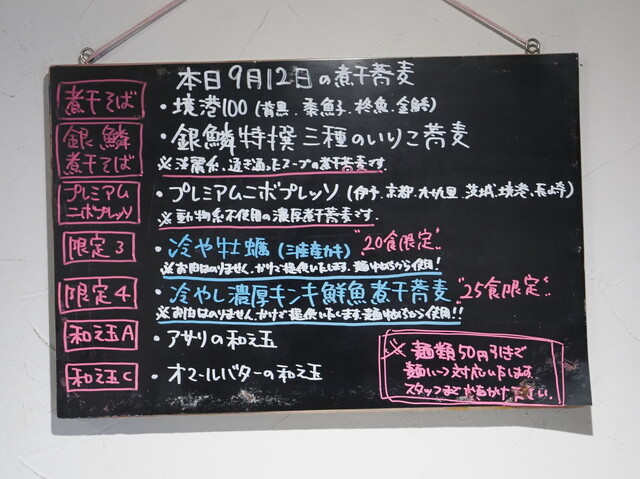 本日9月12日の煮干蕎麦
煮干そば ・境港100 (背黒、飛魚子、鯵魚、金鯵)
銀鱗煮干そば ・銀鱗特撰三種のいりこ蕎麦
※淡麗系、透き通ったスープの煮干蕎麦です。
プレミアムニボプレッソ ・プレミアムニボプレッソ (伊予、京都、九十九里、茨城、境港、長崎等)
※動物系不使用の濃厚煮干蕎麦です。
限定3 ・冷や牡蠣 (三陸産カキ) "20食限定"
※お肉はのりません。かけで提供いたします。麺中
限定4 ・冷やし濃厚キンキ鮮魚煮干蕎麦 "25食限定"
※お肉はのりません。かけで提供いたします。麺
和え玉A ・アサリの和え玉
和え玉C ・オマールバターの和え玉
※麺類50円引きで
麺い 対応いたします
スタッフまでお声がけ下さい。